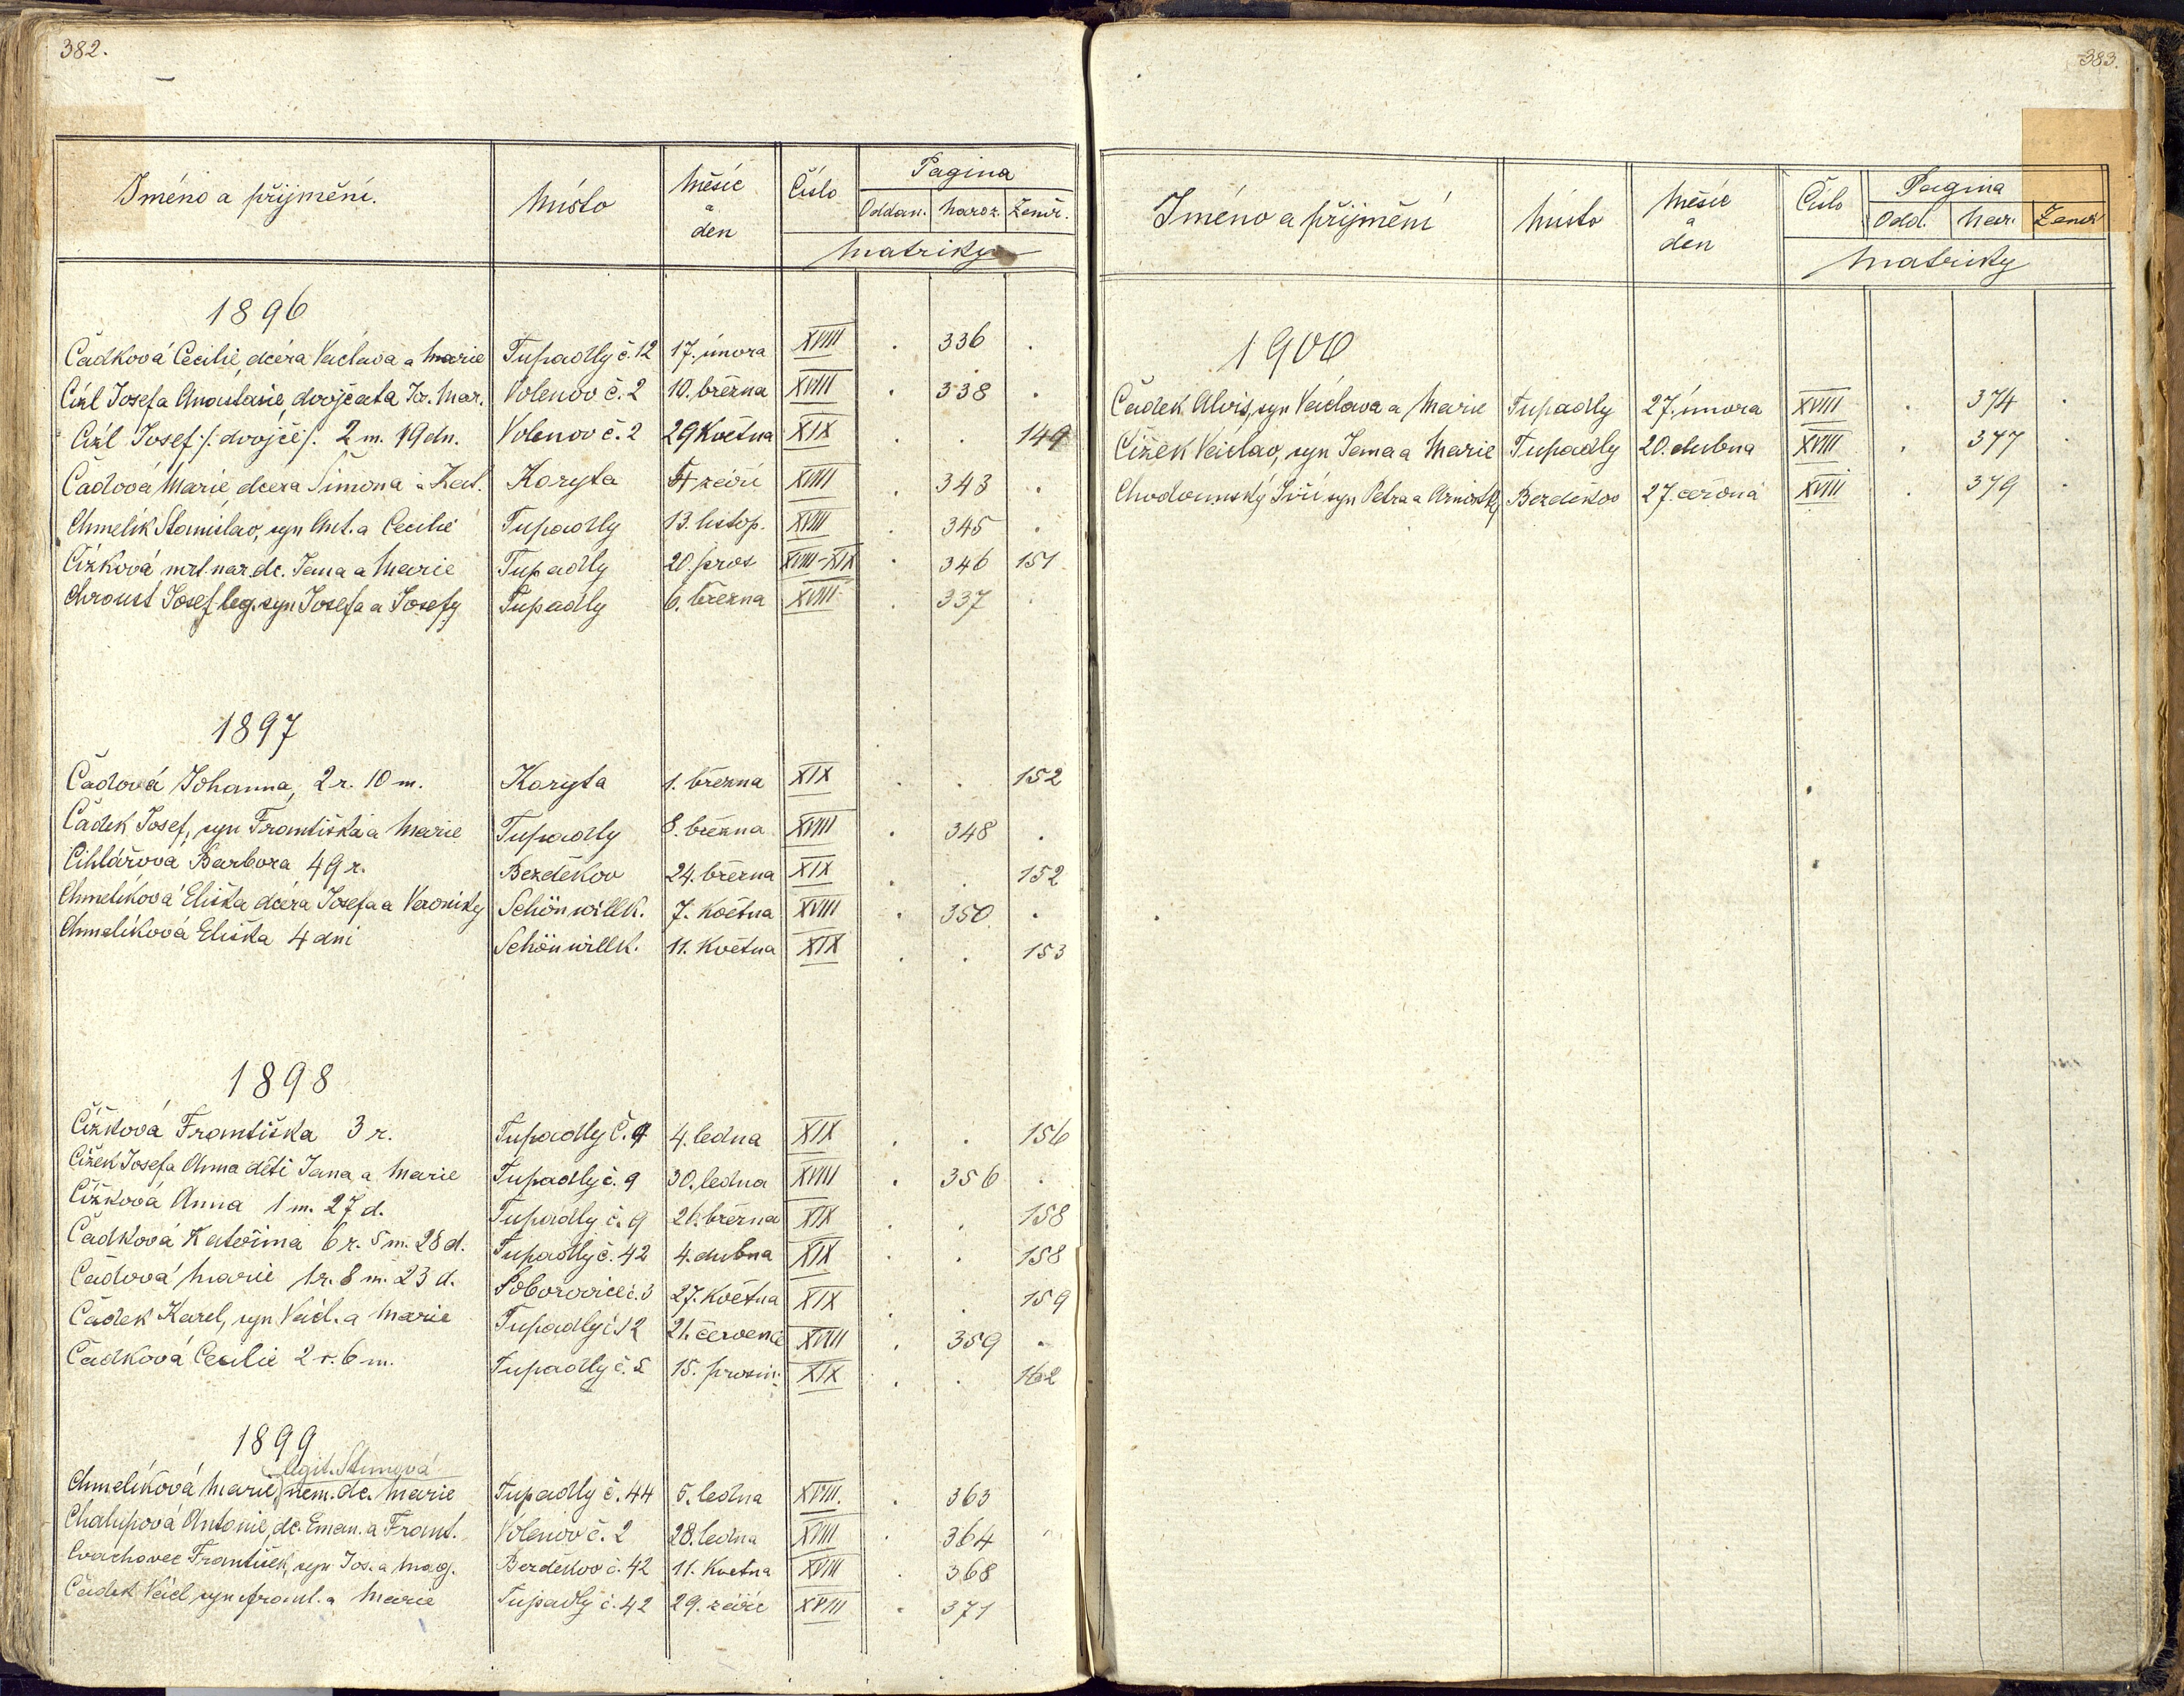 382.
Jméno a přijmění. Místo Měsíc a den Číslo Pagina
Oddan. Naroz. Zemř.
Matriky
1896
Čadková Cecilie, dcéra Václava a Marie Tupadly č. 12 17. února XVIII . 336 .
Cízl Josef a Anastasie dvojčata Jos. Mar. Volenov č. 2 10. března XVIII . 338 .
Cízl Josef /: dvojče /: 2 m. 19 dn. Volenov č. 2 29 Května XIX . . 149
Čadová Marie dcera Šimona a Kat. Koryta 4 září XVIII . 343 .
Chmelík Stanislav, syn Ant. a Cecilie Tupadly 13. listop. XVIII . 345 .
Čížková mrt. nar. dc. Jana a Marie Tupadly 20. pros XVIII-XIX . 346 151
Chroust Josef leg. syn Josefa a Josefy Tupadly 6. března XVIII . 337 .
1897
Čadová Johanna, 2 r. 10 m. Koryta 1. března XIX . . 152
Čadek Josef, syn Františka a Marie Tupadly 8. března XVIII . 348 .
Cihlářová Barbora 49 r. Bezděkov 24. března XIX . . 152
Chmelíková Eliška dcéra Josefa a Veroniky Schönwillk. 7. Května XVIII . 350 .
Chmelíková Eliška 4 dni Schönwillk. 11. Května XIX . . 153
1898
Čížková Františka 3 r. Tupadly č. 9 4. ledna XIX . . 156
Čížek Josef a Anna děti Jana a Marie Tupadly č. 9 30. ledna XVIII . 356 .
Čížková Anna 1 m. 27 d. Tupadly č. 9 26. března XIX . . 158
Čadková Kateřina 6 r. 5 m. 28 d. Tupadly č. 42 4. dubna XIX . . 158
Čadová Marie 1 r. 8 m. 23 d. Poborovice č. 3 27. Května XIX . . 159
Čadek Karel, syn Václ. a Marie Tupadly č 12 21. červenc XVIII . 359 .
Čadková Cecilie 2 r. 6 m. Tupadly č. 5 15. prosin. XIX . . 162
1899
legit. Stunová
Chmelíková Marie, nem. dc. Marie Tupadly č. 44 5. ledna XVIII. . 363
Chalupová Antonie, dc. Eman. a Frant. Volenov č. 2 28. ledna XVIII . 364 .
Cvachovec František, syn Jos. a Mag. Bezděkov č. 42 11. Května XVIII . 368
Čadek Václ. syn Frant. a Marie Tupadly č. 42 29. září XVIII . 371
383.
Jméno a přijmění Místo Měsíc a den Číslo Pagina
Odd. Nar. Zemř
Matriky
1900
Čadek Alois, syn Václava a Marie Tupadly 27. února XVIII . 374 .
Čížek Václav, syn Jana a Marie Tupadly 20. dubna XVIII . 377 .
Chodounský Jiří syn Petra a Arnoštky Bezděkov 27. června XVIII . 379 .